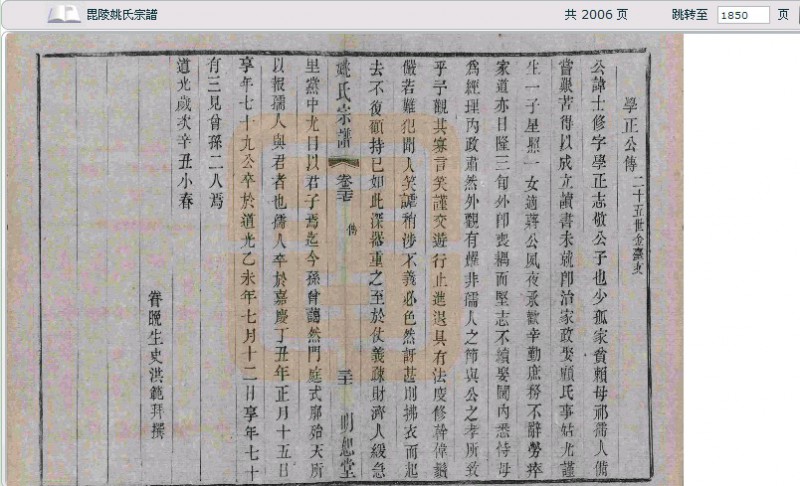 毘陵姚氏宗譜
共 2006 页
跳转至 1850 页
學正公傳 二十五世金臺支
公諱士修字學正志敬公子也少孤家貧賴母祁孺人備
嘗艱苦得以成立讀書未就卽治家政娶顧氏事姑尤謹
生一子星照一女適蔣公夙夜承歡辛勤庶務不辭勞瘁
家道亦日隆三旬外卽喪耦而堅志不續娶閫內悉侍母
爲經理內政肅然外觀有耀非孺人之節與公之孝所致
乎予觀其寡言笑謹交遊行止進退具有法度修幹偉鬚
儼若難犯聞人笑謔稍涉不義必色然訝甚則拂衣而起
去不復顧持己如此深器重之至於仗義疎財濟人緩急
姚氏宗譜 卷 傳 明恕堂
里黨中尤目以君子焉迄今孫曾藹然門庭式廓殆天所
以報孺人與君者也孺人卒於嘉慶丁丑年正月十五日
享年七十九公卒於道光乙未年七月十二日享年七十
有三見曾孫二人焉
道光歲次辛丑小春
眷晚生史洪範拜撰